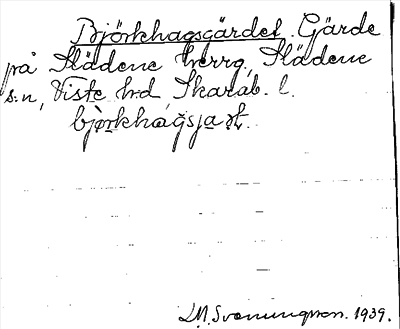 Björkhagsgärdet. Gärde
på Slädene herrg, Slädene
s:n, Viste h:d, Skarab. l.
bjòrkhagsjaʂt.
L.M. Svenungsson. 1939.